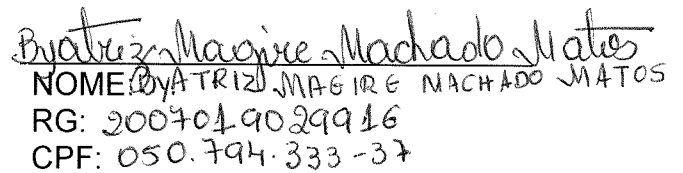 Byatriz Magire Machado Matos
NOME: BYATRIZ MAGIRE MACHADO MATOS
RG: 2007019029916
CPF: 050.794.333-37